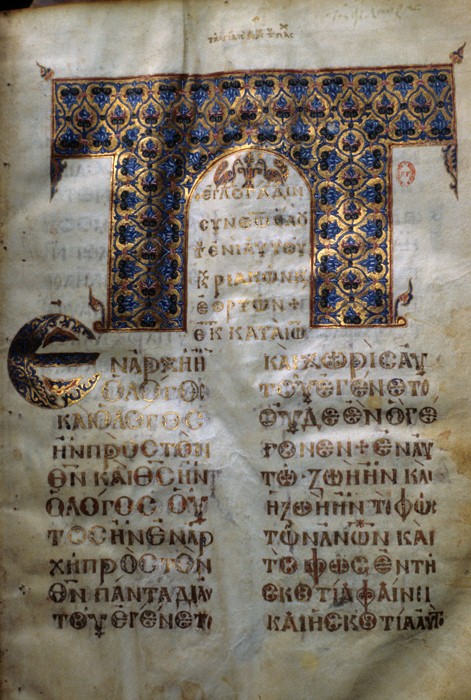 ϹΥΝ
ΕΟΡΤΩΝ
ΕΚ ΚΑΤΑ ΙΩ
ΕΝ ΑΡΧΗ ΗΝ
Ο ΛΟΓΟϹ
ΚΑΙ Ο ΛΟΓΟϹ
ΗΝ ΠΡΟϹ ΤΟΝ
ΘΝ ΚΑΙ ΘϹ ΗΝ
Ο ΛΟΓΟϹ ΟΥ
ΤΟϹ ΗΝ ΕΝ ΑΡ
ΧΗ ΠΡΟϹ ΤΟΝ
ΘΝ ΠΑΝΤΑ ΔΙ ΑΥ
ΤΟΥ ΕΓΕΝΕΤΟ
ΚΑΙ ΧΩΡΙϹ ΑΥ
ΤΟΥ ΕΓΕΝΕΤΟ
ΟΥΔΕ ΕΝ Ο ΓΕ
ΓΟΝΕΝ + ΕΝ ΑΥ
ΤΩ · ΖΩΗ ΗΝ ΚΑΙ
Η ΖΩΗ ΗΝ ΤΟ ΦΩϹ
ΤΩΝ ΑΝΩΝ ΚΑΙ
ΤΟ ΦΩϹ ΕΝ ΤΗ
ϹΚΟΤΙΑ ΦΑΙΝΕΙ
ΚΑΙ Η ϹΚΟΤΙΑ ΑΥΤΟ